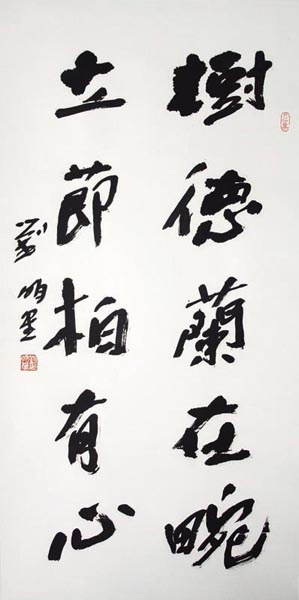 樹德蘭在畹
立節柏有心
劉